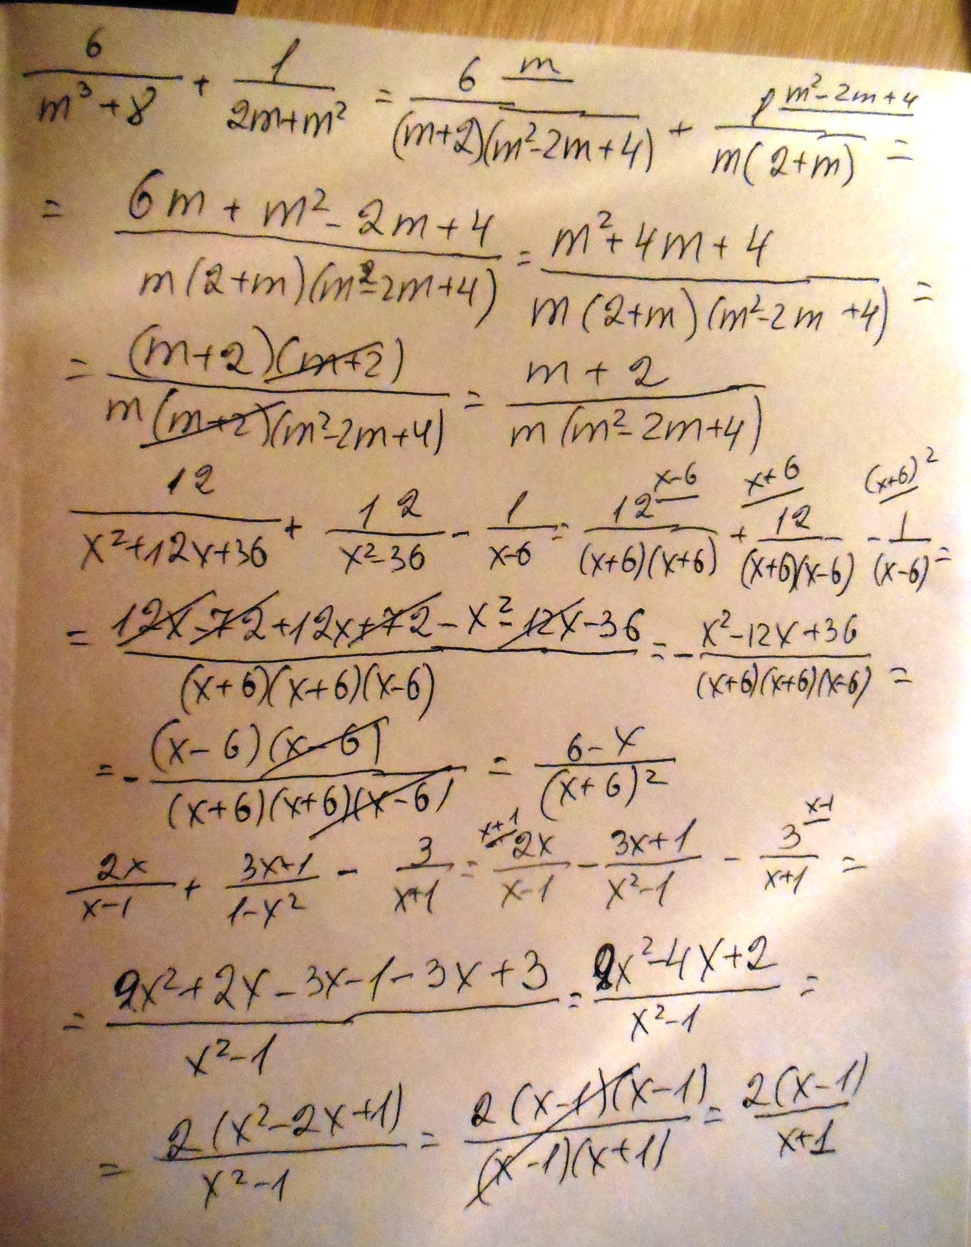 6/(m³+8) + 1/(2m+m²) = 6 m/((m+2)(m²-2m+4)) + 1 m²-2m+4/(m(2+m)) =
= (6m+m²-2m+4)/(m(2+m)(m²-2m+4)) = (m²+4m+4)/(m(2+m)(m²-2m+4)) =
= (m+2)(m+2)/(m(m+2)(m²-2m+4)) = (m+2)/(m(m²-2m+4))
12/(x²+12x+36) + 12/(x²-36) - 1/(x-6) = 12 x-6/((x+6)(x+6)) + x+6 12/((x+6)(x-6)) - (x+6)² 1/(x-6) =
= (12x-72+12x+72-x²-12x-36)/((x+6)(x+6)(x-6)) = -(x²-12x+36)/((x+6)(x+6)(x-6)) =
= -(x-6)(x-6)/((x+6)(x+6)(x-6)) = (6-x)/(x+6)²
2x/(x-1) + (3x+1)/(1-x²) - 3/(x+1) = x+1 2x/(x-1) - (3x+1)/(x²-1) - 3 x-1/(x+1) =
= (2x²+2x-3x-1-3x+3)/(x²-1) = (2x²-4x+2)/(x²-1) =
= 2(x²-2x+1)/(x²-1) = 2(x-1)(x-1)/((x-1)(x+1)) = 2(x-1)/(x+1)